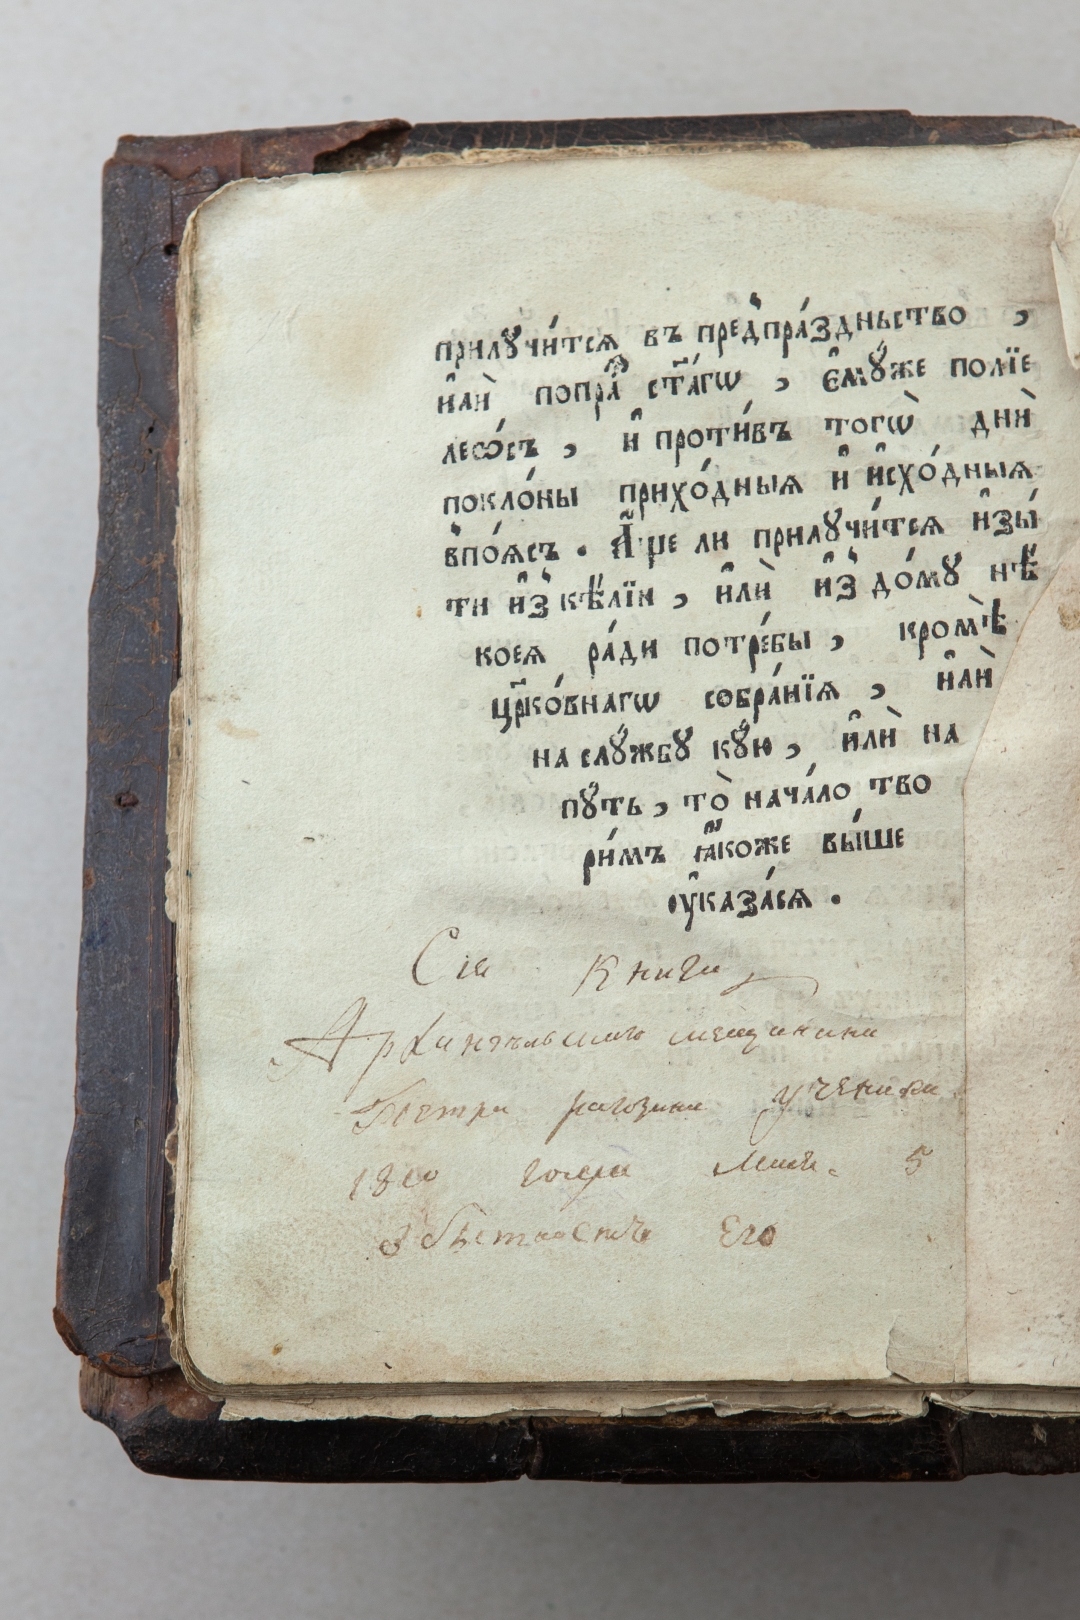 прилꙋчи́тсѧ въ предпра́здньство ,
и҆лѝ попра́ ст҃а́гѡ , є҆мꙋ́же полїе
леѡ́съ , и҆ проти́въ тогѡ̀ днѝ
покло́ны прихо́дныѧ и҆ и҆схо́дныѧ
в̾по́ѧсъ . А҆́ще ли прилꙋчи́тсѧ и҆зы́
ти и҆з̾ кѣ́лїи , и҆лѝ и҆з̾ до́мꙋ нѣ́
коеѧ ра́ди потре́бы , кромѣ̀
цр҃ко́внагѡ собра́нїѧ , и҆лѝ
на слꙋ́жбꙋ кꙋ́ю , и҆лѝ на
пꙋ́ть , то̀ нача́ло тво
ри́мъ ꙗ҆́коже вы́ше
оу҆каза́сѧ .
Сiя Книга
мещанина
Петра ученика
года 5
Его